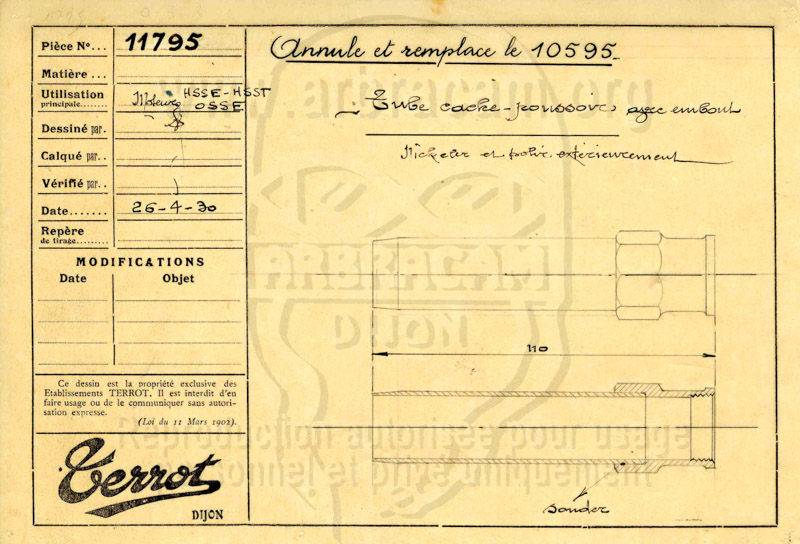 Pièce No... 11795
Matière ...
Utilisation principale........ Moteurs HSSE-HSST OSSE
Dessiné par.
Calqué par..
Vérifié par..
Date....... 26-4-30
Repère de tirage.........
MODIFICATIONS
Date Objet
Ce dessin est la propriété exclusive des
Etablissements TERROT. Il est interdit d'en
faire usage ou de le communiquer sans autori-
sation expresse.
(Loi du 11 Mars 1902).
Terrot
DIJON
Annule et remplace le 10595
Tube cache-poussoirs avec embout
Nickeler et polir extérieurement
110
souder
www.arbracam.org
ARBRACAM
DIJON
Reproduction autorisée pour usage
personnel et privé uniquement